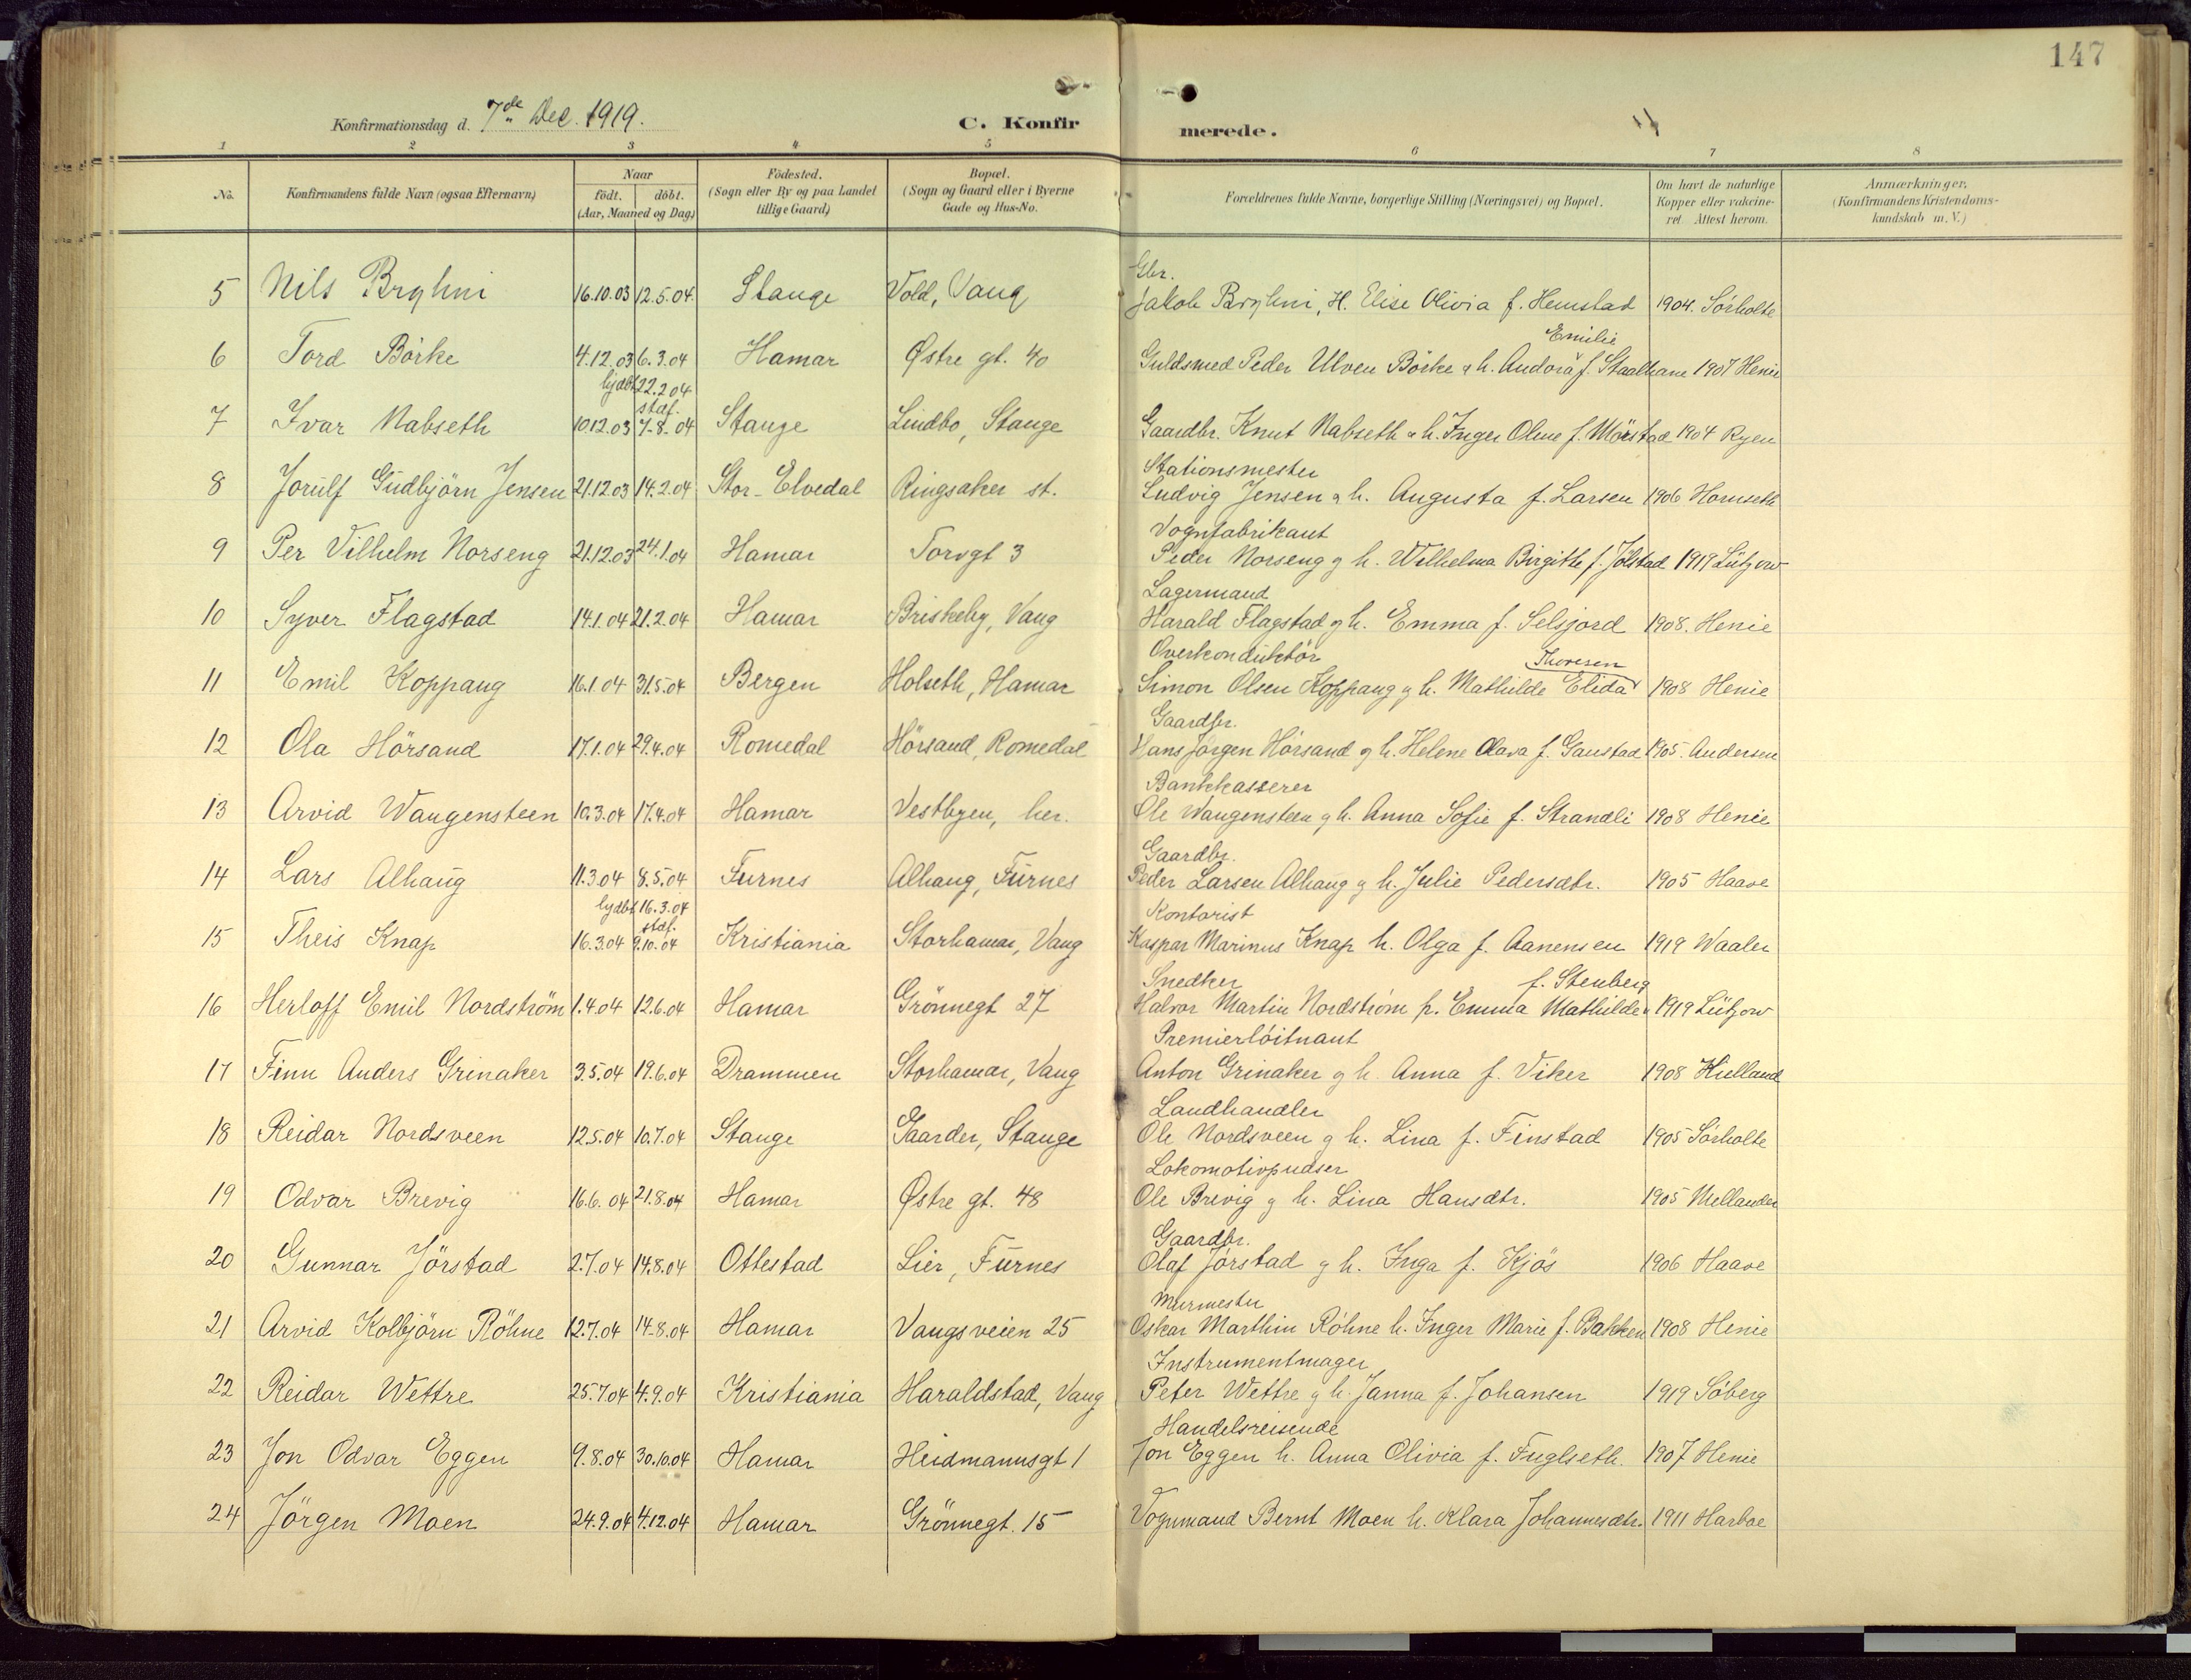 147
Konfirmationsdag d. 7de Dec. 1919.
C. Konfirmerede.
1 2 3 4 5 6 7 8
No.
Konfirmandens fulde Navn (ogsaa Efternavn)
Naar
födt. döbt.
(Aar, Maaned og Dag)
Födested.
(Sogn eller By og paa Landet
tillige Gaard)
Bopæl.
(Sogn og Gaard eller i Byerne
Gade og Hus-No.
Forældrenes fulde Navne, borgerlige Stilling (Næringsvei) og Bopæl.
Om havt de naturlige
Kopper eller vakcine-
ret Attest herom.
Anmærkninger,
(Konfirmandens Kristendoms-
kundskab m. V.)
Gbr.
5 Nils Bryhni 16.10.03 12.5.04 Stange Vold, Vang Jakob Bryhni, H. Elise Olivia f. Hemstad 1904. Sörholte
Emilie
6 Tord Börke 4.12.03 6.3.04 Hamar Østre gt. 40 Guldsmed Peder Ulven Börke & h. Andora f. Staalhane 1907 Henie
hjdbt 22.2.04
stdf.
7 Ivar Nabseth 10.12.03 7.8.04 Stange Lindbo, Stange Gaardbr. Knut Nabseth & h. Inger Oline f. Mörstad 1904 Ryen
Stationsmester
8 Jorulf Gudbjörn Jensen 21.12.03 14.2.04 Stor-Elvedal Ringsaker st. Ludvig Jensen & h. Augusta f. Larsen 1906 Hornseth
Vognfabrikant
9 Per Vilhelm Norseng 21.12.03 24.1.04 Hamar Torvgt 3 Peder Norseng g h. Wilhelma Birgithe f. Jölstad 1919 Lützow
Lagermand
10 Syver Flagstad 14.1.04 21.2.04 Hamar Briskeby, Vang Harald Flagstad g h. Emma f. Selsjord 1908. Henie
Overkonduktör
Thoresen
11 Emil Koppang 16.1.04 31.5.04 Bergen Holseth, Hamar Simon Olsen Koppang g h. Mathilde Elida 1908 Henie
Gaardbr.
12 Ola Hörsand 17.1.04 29.4.04 Romedal Hörsand, Romedal Hans Jörgen Hörsand g h. Helene Olava f. Gaustad 1905. Andersen
Bankkasserer
13 Arvid Wangensteen 10.3.04 17.4.04 Hamar Vestbyen, her. Ole Wangensteen g h. Anna Sofie f. Strandli 1908 Henie
Gaardbr.
14 Lars Alhaug 11.3.04 8.5.04 Furnes Alhaug, Furnes Peder Larsen Alhaug g h. Julie Pedersdtr. 1905 Haave
hjdbt 16.3.04
stdf.
Kontorist
15 Theis Knap 16.3.04 9.10.04 Kristiania Storhamar, Vang Kaspar Marinus Knap h. Olga f. Aanensen 1919 Waaler
Snedker f. Stenberg
16 Herloff Emil Nordström 1.4.04 12.6.04 Hamar Grönnegt 27 Halvor Martin Nordström h. Emma Mathilde 1919 Lützow
Premierlöitnant
17 Finn Anders Grinaker 3.5.04 19.6.04 Drammen Storhamar, Vang Anton Grinaker g h. Anna f. Viker 1908 Kielland
Landhandler
18 Reidar Nordsveen 12.5.04 10.7.04 Stange Gaarder, Stange Ole Nordsveen g h. Lina f. Finstad 1905 Sörholte
Lokomotivpudser
19 Odvar Brevig 16.6.04 21.8.04 Hamar Østre gt. 48 Ole Brevig g h. Lina Hansdtr. 1905 Mellander
Gaardbr.
20 Gunnar Jörstad 2.7.04 14.8.04 Ottestad Lier, Furnes Olaf Jörstad g h. Inga f. Kjös 1906 Haave
Murmester
21 Arvid Kolbjörn Röhne 12.7.04 14.8.04 Hamar Vangsveien 25 Oskar Marthin Röhne h. Inger Marie f. Bakken 1908 Henie
Instrumentmager
22 Reidar Wettre 25.7.04 4.9.04 Kristiania Haraldstad, Vang Peter Wettre g h. Janna f. Johansen 1919 Söberg
Handelsreisende
23 Jon Odvar Eggen 9.8.04 30.10.04 Hamar Heidmannsgt 1 Jon Eggen h. Anna Olivia f. Fuglseth. 1907 Henie
24 Jörgen Moen 24.9.04 4.12.04 Hamar Grönnegt. 15 Vognmand Bernt Moen h. Klara Johannesdtr. 1911 Harboe